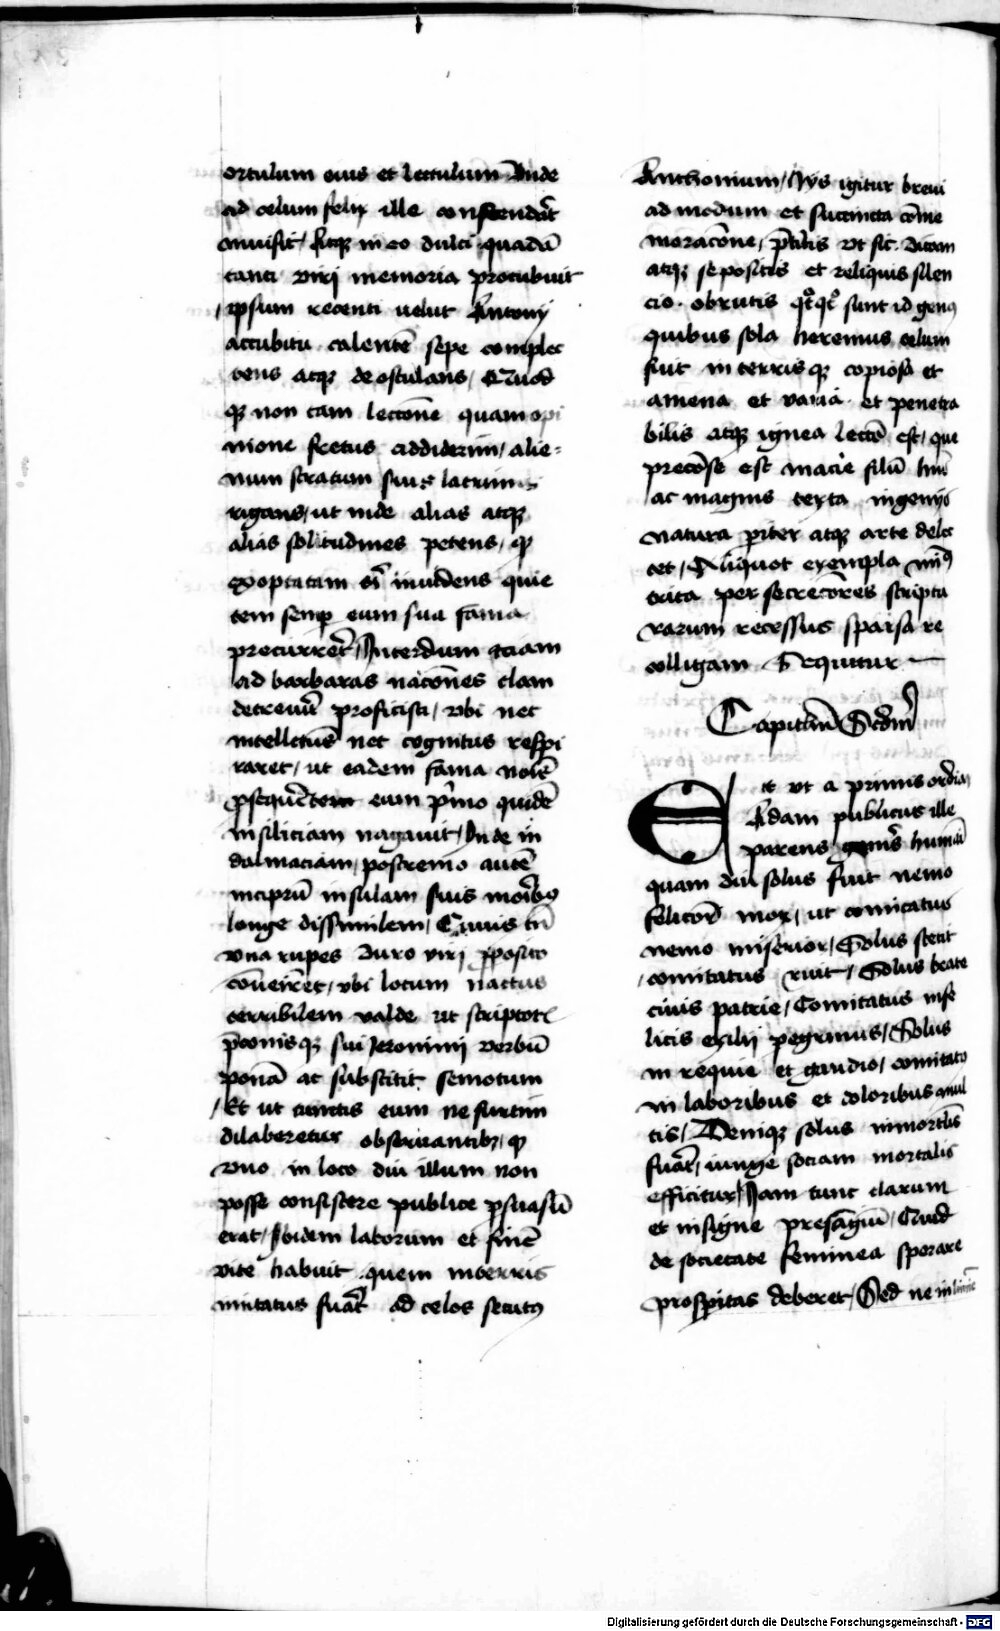 ortulum eius et lectulum Unde
ad celum felix ille conscendat̄
inuisit / Atqꝫ in eo dulci quadā
tanti viri memoria procubuit
/ ipsum recenti velut Antonij
accubitu calentē sepe complec
tens atqꝫ deosculans / Quod
qꝫ non tam lectōne quam opi
nione fretus addiderim / alie=
num stratum suis lacrimis
rigans / ut inde alias atqꝫ
alias solitudines petens / qꝫ
exoptatam sī inuidens quie
tem semꝑ eum sua fama
precurret̄ / Interdum etiam
ad barbaras nacōnes clam
decreuit̄ proficisci / vbi nec
intellectus nec cognitus respi
raret / ut eadem fama nolē
ꝓsequētem eum pͥmo quidē
in siliciam nagauit / Inde in
dalmaciam / postremo autē
in ciprū insulam suis moribꝫ
longe dissimilem / Cuius tn̄
vna rupes duro viri ꝓposito
cōuenīret / vbi locum nactus
terribilem valde ut scriptor̄
p̄conisqꝫ sui Jeronimi verbū
ponā ac substitit semotum
/ Et ut cunctis eum ne furtim
dilaberetur obseruantibꝫ / qꝫ
vno in loco diu illum non
posse consistere publice ꝑsuasū
erat / Ibidem laborum et finē
vite habuit quem in terris
imitatus fuat̄ ad celos secutꝰ
Anthonium / Hijs igitur breui
ad modum et succincta cōme
moracōne / p̄titis vt sic dicam
atqꝫ sepositis et reliquis silen
cio obrutis qͦtqͦt sunt id genꝰ
quibus sola heremus celum
fuit in terris qꝫ copiosa et
amena et varia et penetra
bilis atqꝫ ignea lectō est / que
precōse est macie silū
ac magnis texta ingenijs
natura ꝑiter atqꝫ arte delec
tet / Aliquot exempla minꝰ
trita per secretōres scriptu
rarum recessus sparsa re
colligam Sequitur
Capitulū Scdm̄
Et ut a primis ordiar
Adam publicus ille
parens genīs humani
quam diu solus fuit nemo
felicior̄ mox / ut comitatus
nemo miserior / Solus stetit
/ comitatus ruit / Solus beate
ciuis patrie / Comitatus infe
licis exilij pegrinus / Solus
in requie et gaudio / comitatus
in laboribus et doloribus mul
tis / Deniqꝫ solus inmortalis
fuat̄ / iunge sociam mortalis
efficitur / Iam tunc clarum
et insigne presagiū / Quid
de societate feminea sperare
prosꝑitas deberet / Sed ne in limine
Digitalisierung gefördert durch die Deutsche Forschungsgemeinschaft - DFG